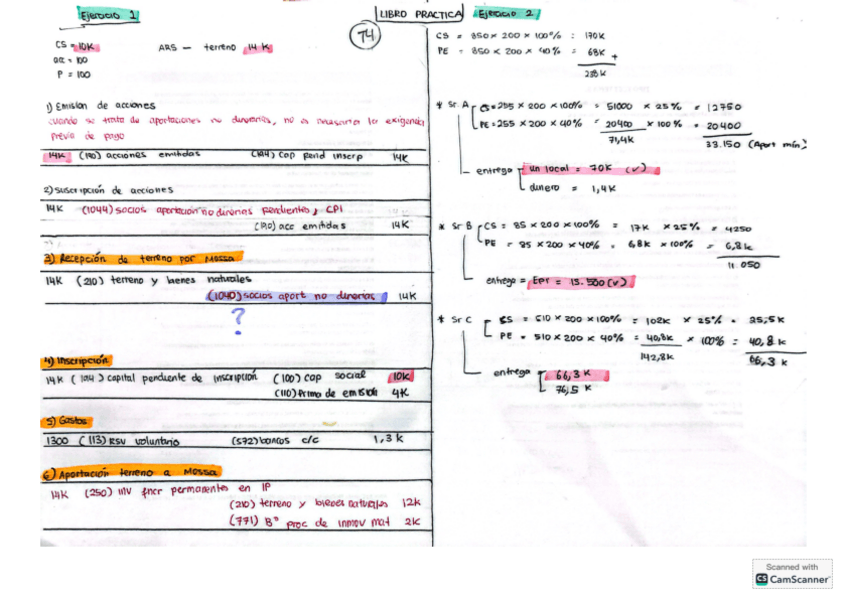 LIBRO PRACTICA
74
Ejercicio 1
CS = 10K
ARS — terreno 14 K
acc = 100
P = 100
1) Emisión de acciones
cuando se trate de aportaciones no dinerarias, no es necesaria la exigencia
previa de pago
14K (190) acciones emitidas (194) cap pend inscrip 14K
2) Suscripción de acciones
14K (1044) socios aportación no dineraria pendientes, CPI
(190) acc emitidas 14K
3) Recepción de terreno por Mossa
14K (210) terreno y bienes naturales
(1040) socios aport no dinerarias 14K
?
4) Inscripción
14K (194) capital pendiente de inscripción (100) cap social 10K
(110) Prima de emisión 4K
5) Gastos
1300 (113) RSV voluntario (572) bancos c/c 1,3K
6) Aportación terreno a Mossa
14K (250) INV fncr permanentes en IP
(210) terreno y bienes naturales 12K
(771) Bº proc de inmov mat 2K
Ejercicio 2
CS = 850 x 200 x 100% : 170K
PE = 850 x 200 x 40% = 68K +
238K
* Sr. A CS = 255 x 200 x 100% = 51000 x 25% = 12750
PE = 255 x 200 x 40% = 20400 x 100% = 20400
71,4K 33.150 (Aport mín)
entrega un local = 70K (v)
dinero = 1,4K
* Sr B CS = 85 x 200 x 100% = 17K x 25% = 4250
PE = 85 x 200 x 40% = 6,8K x 100% = 6,8K
11.050
entrega = Epr = 15.500 (v)
* Sr C CS = 510 x 200 x 100% = 102K x 25% = 25,5K
PE = 510 x 200 x 40% = 40,8K x 100% = 40,8K
142,8K 66,3 K
entrega 66,3 K
76,5 K
Scanned with
CS CamScanner